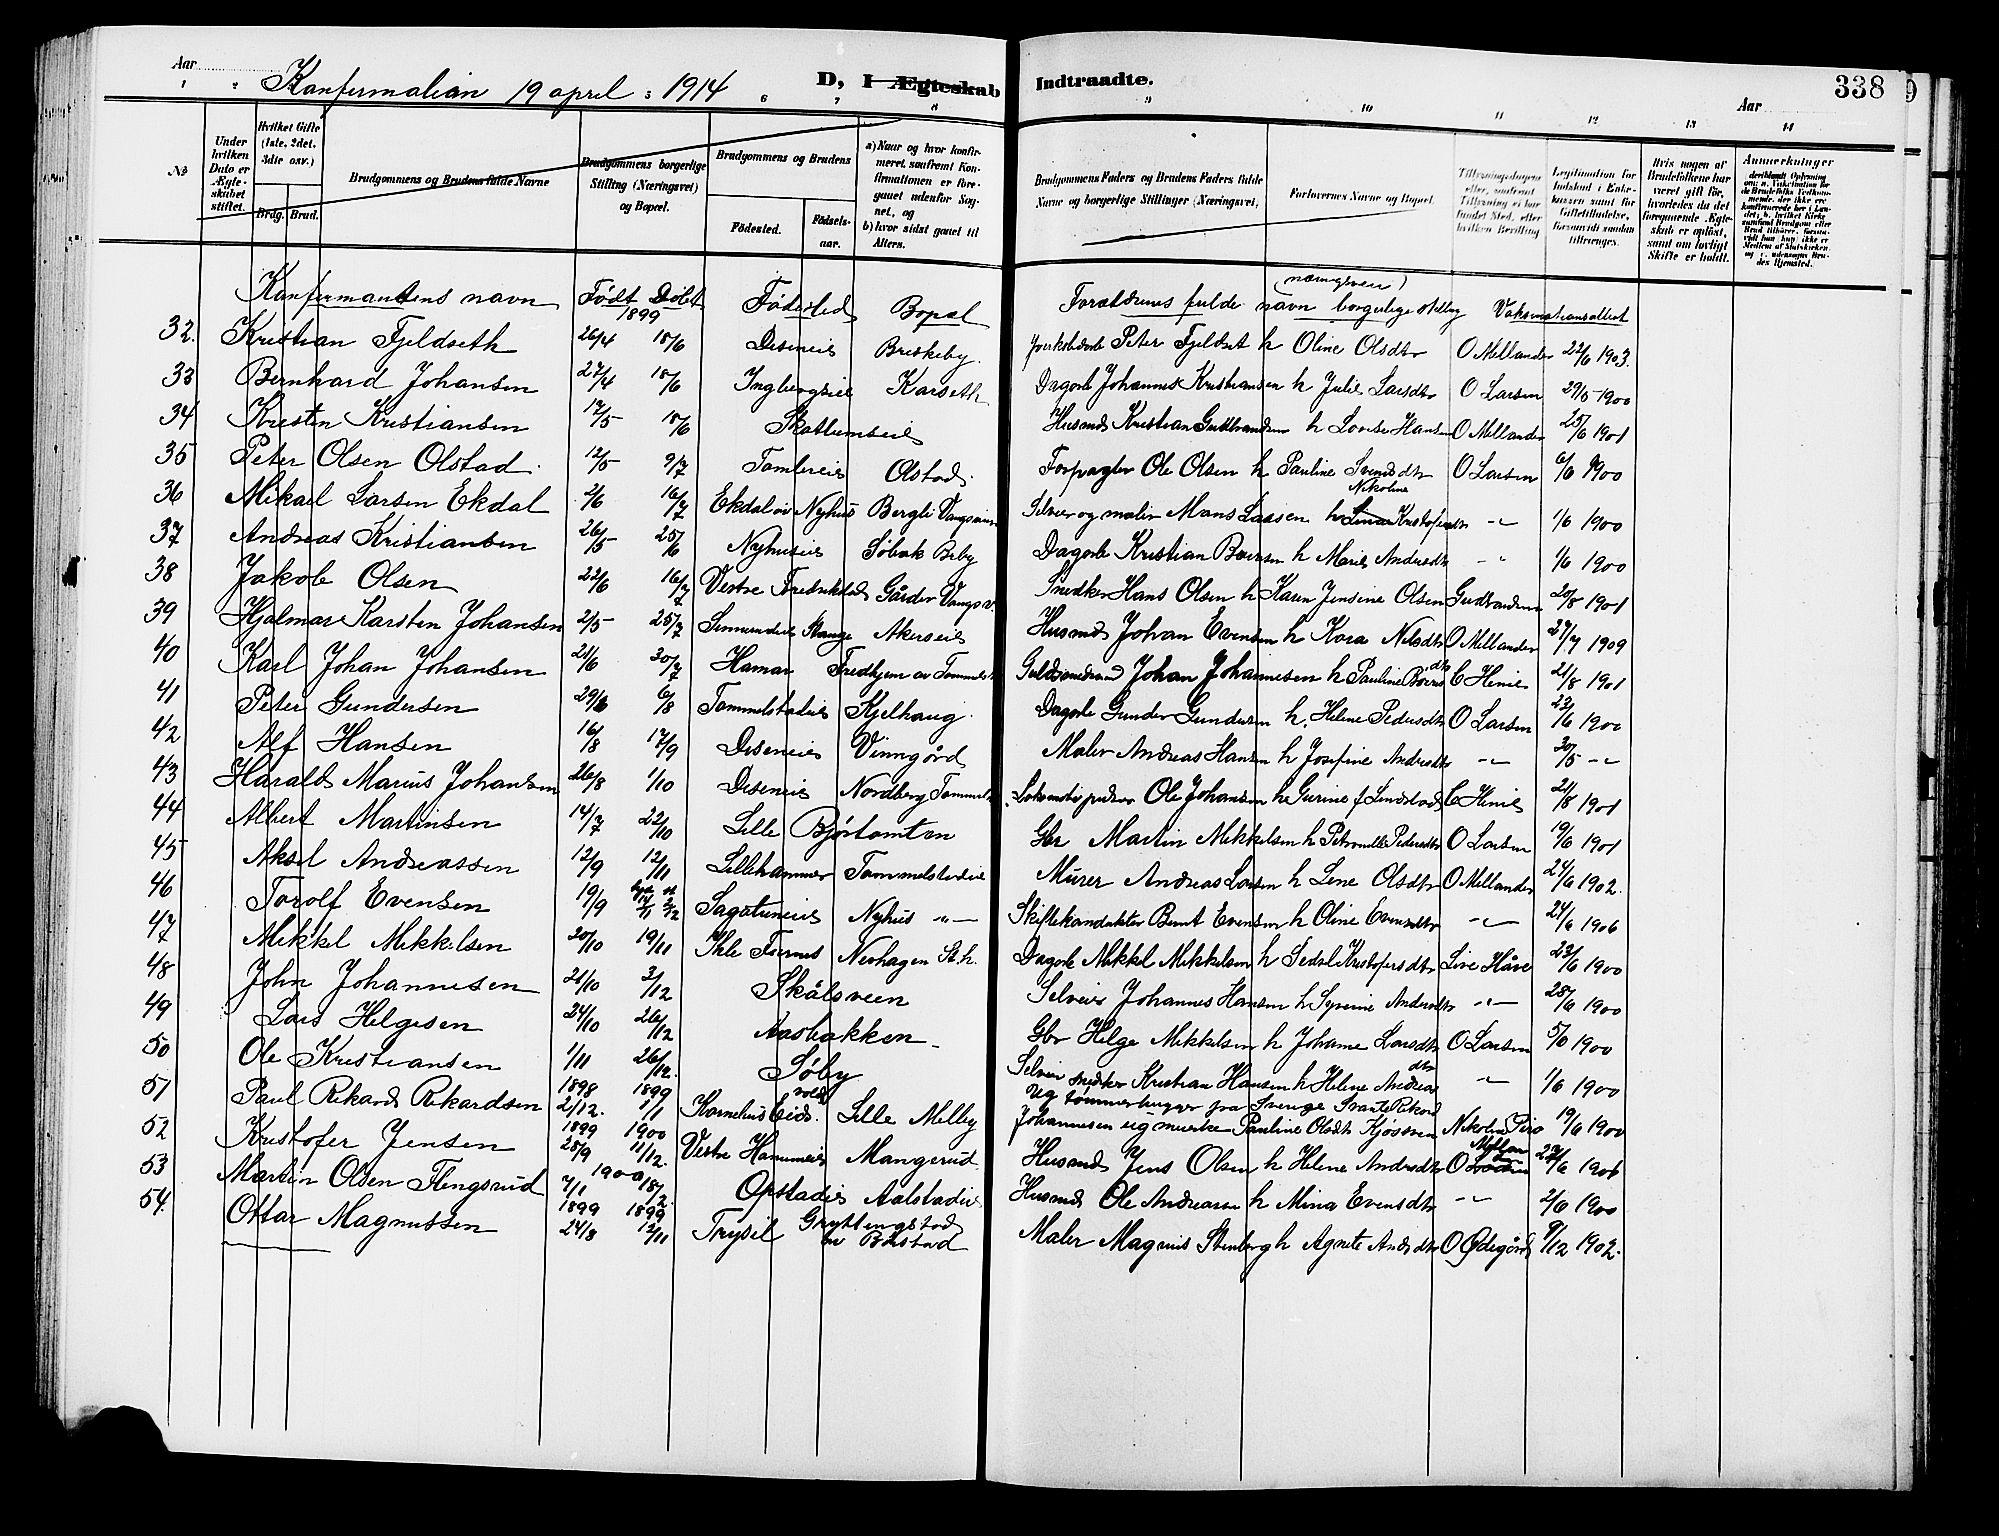 Aar
Konfirmation 19 april 1914
D, I Ægteskab Indtraadte.
338
Aar
1 2 3 6 7 8 9 10 11 12 13 14
No
Under hvilken Dato er Ægteskabet stiftet.
Hvilket Gifte (1ste, 2det, 3die osv.)
Brdg. Brud.
Brudgommens og Brudens fulde Navne
Brudgommens borgerlige Stilling (Næringsvei) og Bopæl.
Brudgommens og Brudens
Fødested. Fødselsaar.
a) Naar og hvor konfirmeret, samt om Konfirmationen er foregaaet udenfor Sognet, og
b) hvor sidst gaaet til Alters.
Brudgommens Faders og Brudens Faders fulde Navne og borgerlige Stillinger (Næringsvei)
Forlovernes Navne og Bopæl.
Legitimation for Indskud i Enkekassen samt for Giftetilladelse, forsaavidt saadan tiltrænges.
Hvis nogen af Brudefolkene har været gift før, hvorledes da det foregaaende Ægteskab er opløst, samt om lovligt Skifte er holdt.
Anmerkninger
Konfirmantens navn Født Døbt Fødested Bopæl Forældrenes fulde navn borgerlige stilling (næringsvei) Vaksinationsattest
1899
32. Kristian Fjeldseth 26/4 18/6 Diseneie Briskeby Peter Fjeldset h Oline Olsdtr O Millander 22/6 1903.
33 Bernhard Johansen 27/4 18/6 Ingbergseie Karseth Dagarb Johannes Kristiansen h Julie Larsdtr O Larsen 29/5 1900
34 Kresten Kristiansen 17/5 18/6 Skattumseie Husmd Kristian Gudbrandsen h Lovise Hansen O Millander 25/6 1901
35 Peter Olsen Olstad 12/5 9/7 Tomtereie Olstad Forpagter Ole Olsen h Pauline Svendsdtr O Larsen 6/6 1900
36 Mikael Larsen Ekdal 2/6 16/7 Ekdal av Nyhus Bergli Vangsveien Selveier og maler Mans Larsen h Nikoline Kristofersdtr -"- 1/6 1900
37 Andreas Kristiansen 26/5 25/6 Nyhuseie Søbak Beby Dagarb Kristian Berntsen h Marie Andersdtr -"- 1/6 1900
38 Jakob Olsen 22/6 16/7 Vestre Fredrikstad Gården Vangsv. Snedker Hans Olsen h Karen Jensine Olsen Gudbrandsen 20/8 1901
39 Hjalmar Karsten Johansen 2/5 25/7 Sinnerudeie Stange Akerseie Husmd Johan Evensen h Kora Nilsdtr O Millander 27/7 1909
40 Karl Johan Johansen 21/6 30/7 Hamar Fredhjem av Tommelst Guldsmedsvend Johan Johannesen h Pauline Berntsdtr C Henie 21/8 1901
41 Peter Gundersen 29/6 6/8 Tommelstadeie Kjelhaug Dagarb Gunder Gundersen h. Helene Pedersdtr O Larsen 23/6 1900
42 Alf Hansen 16/8 17/9 Diseneie Vinngård Maler Andreas Hansen h Josefine Andersdtr -"- 30/5 -"-
43 Harald Marius Johansen 26/8 1/10 Diseneie Nordberg Tommelst Lokomotivpudser Ole Johansen h Gurine f Lindstad C Henie 21/8 1901
44 Albert Martinsen 14/7 22/10 Lille Bjørtomten Gbr Martin Mikkelsen h Petronelle Pedersdtr O Larsen 19/6 1901
45 Aksel Andreassen 12/9 12/11 Lillehammer Tommelstadeie Murer Andreas Larsen h Lene Olsdtr O Millander 24/6 1902.
46 Torolf Evensen 19/9 Sagatuneie Nyhus -"- Skiftekonduktør Bernt Evensen h Oline Evensdtr -"- 21/6 1906
47 Mikkel Mikkelsen 20/10 19/11 Ihle Furnes Nerhagen St.h. Dagarb Mikkel Mikkelsen h Sedsel Kristofersdtr Live Håve 23/6 1900
48 John Johannesen 21/10 3/12 Skålsveen Selveier Johannes Hansen h Syverine Andersdtr -"- 28/6 1900
49 Lars Helgesen 24/10 26/12 Aasbakken Gbr Helge Mikkelsen h Johanne Larsdtr O Larsen 5/6 1900
50 Ole Kristiansen 1/11 26/12. Søby Selveier snedker Kristian Hansen h Helene Andreasdtr -"- 1/6 1900
51 Paul Rikard Rikardsen 1898 2/12. 1899 1/1 Kornelius Eidsvold Lille Melby Ug tømmerhugger fra Sverige Svante Rikard Johannesen ug pauline Olsdtr Nikoline 19/6 1900
52 Kristofer Jensen 1899 25/9 1900 11/12. Vestre Hammeneie Mangerud Husmd Jens Olsen h Helene Andersdtr O 1906
53 Martin Olsen Flengsrud 1900 7/1 18/2. Opstadeie Aalstadeie Husmd Ole Andreasen h Mina Evensdtr -"- 2/6 1900
54. Ottar Magnussen 1899 24/8 1899 12/11 Trysil Gryttingstad av Bolstad Maler Magnus Stenberg h Agnete Andersdtr O Ødegård 9/12 1902.